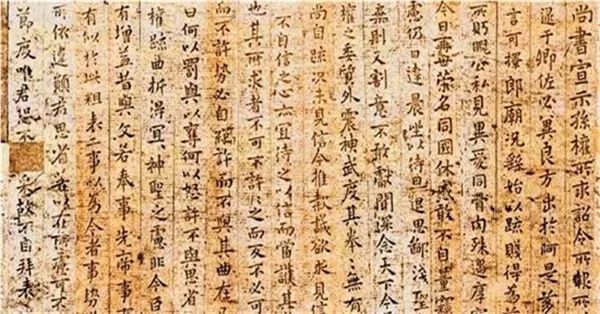 尚書宣示孫權所求詔令所報所
逮于卿佐必冀良方出於阿是芻
言可擇郎廟況繇始以疏賤得為
所眄睨公私見異愛同骨肉殊遇厚
今日再世榮名同國休慼敢不自量竊
慮仍日達晨坐以待旦退思鄙淺聖
棄則又割意不敢獻聞深念天下今
權之委質外震神武度其拳拳無有
尚自疏況未見信今推款誠欲求見信
不自信之心亦宜待之以信而當護其
也其所求者不可不許許之而反不必可
而不許勢必自絕許而不與其曲在
曰何以罰與以奪何以怒許不與思省
權疏曲折得宜宜神聖之慮非今臣
有增益昔與文若奉事先帝事有
有似於此粗表二事以為今者事勢
所依違願君思省若以在所慮可不
節度唯君恐不采故不自拜表